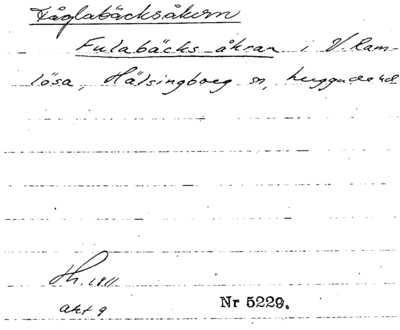 Fåglabäcksåkern
Fulabäcks åkran i V. Ram-
lösa, Hälsingborg sn, Luggude hd
Th. 1811
akt 9
Nr 5229.